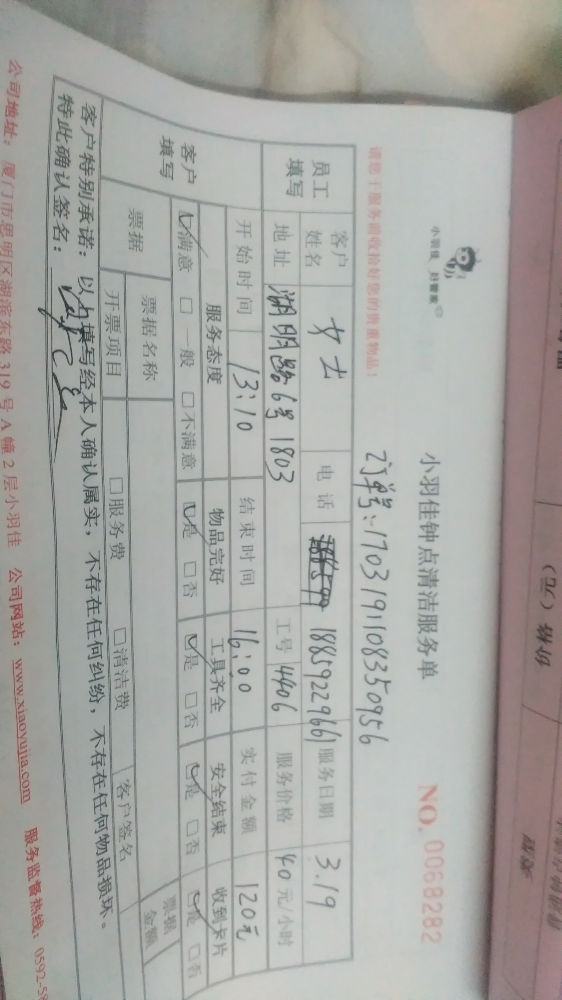 小羽佳 好管家
小羽佳钟点清洁服务单
NO. 0068282
请您于服务前收拾好您的贵重物品!
订单号:170319108350956
员工填写 客户姓名 女士 电话 18859229661 服务日期 3.19
地址 湖明路6号1803 工号 4406 服务价格 40元/小时
客户填写 开始时间 13:10 结束时间 16:00 实付金额 120元
服务态度 物品完好 工具齐全 安全结束 收到卡片
☑满意 □一般 □不满意 ☑是 □否 ☑是 □否 ☑是 □否 ☑是 □否
票据 票据名称 票据金额
开票项目 □服务费 □清洁费 客户签名
客户特别承诺:以上填写经本人确认属实,不存在任何纠纷,不存在任何物品损坏。
特此确认签名:
公司地址:厦门市思明区湖滨东路319号A幢2层小羽佳 公司网站:www.xiaoyujia.com 服务监督热线:0592-58